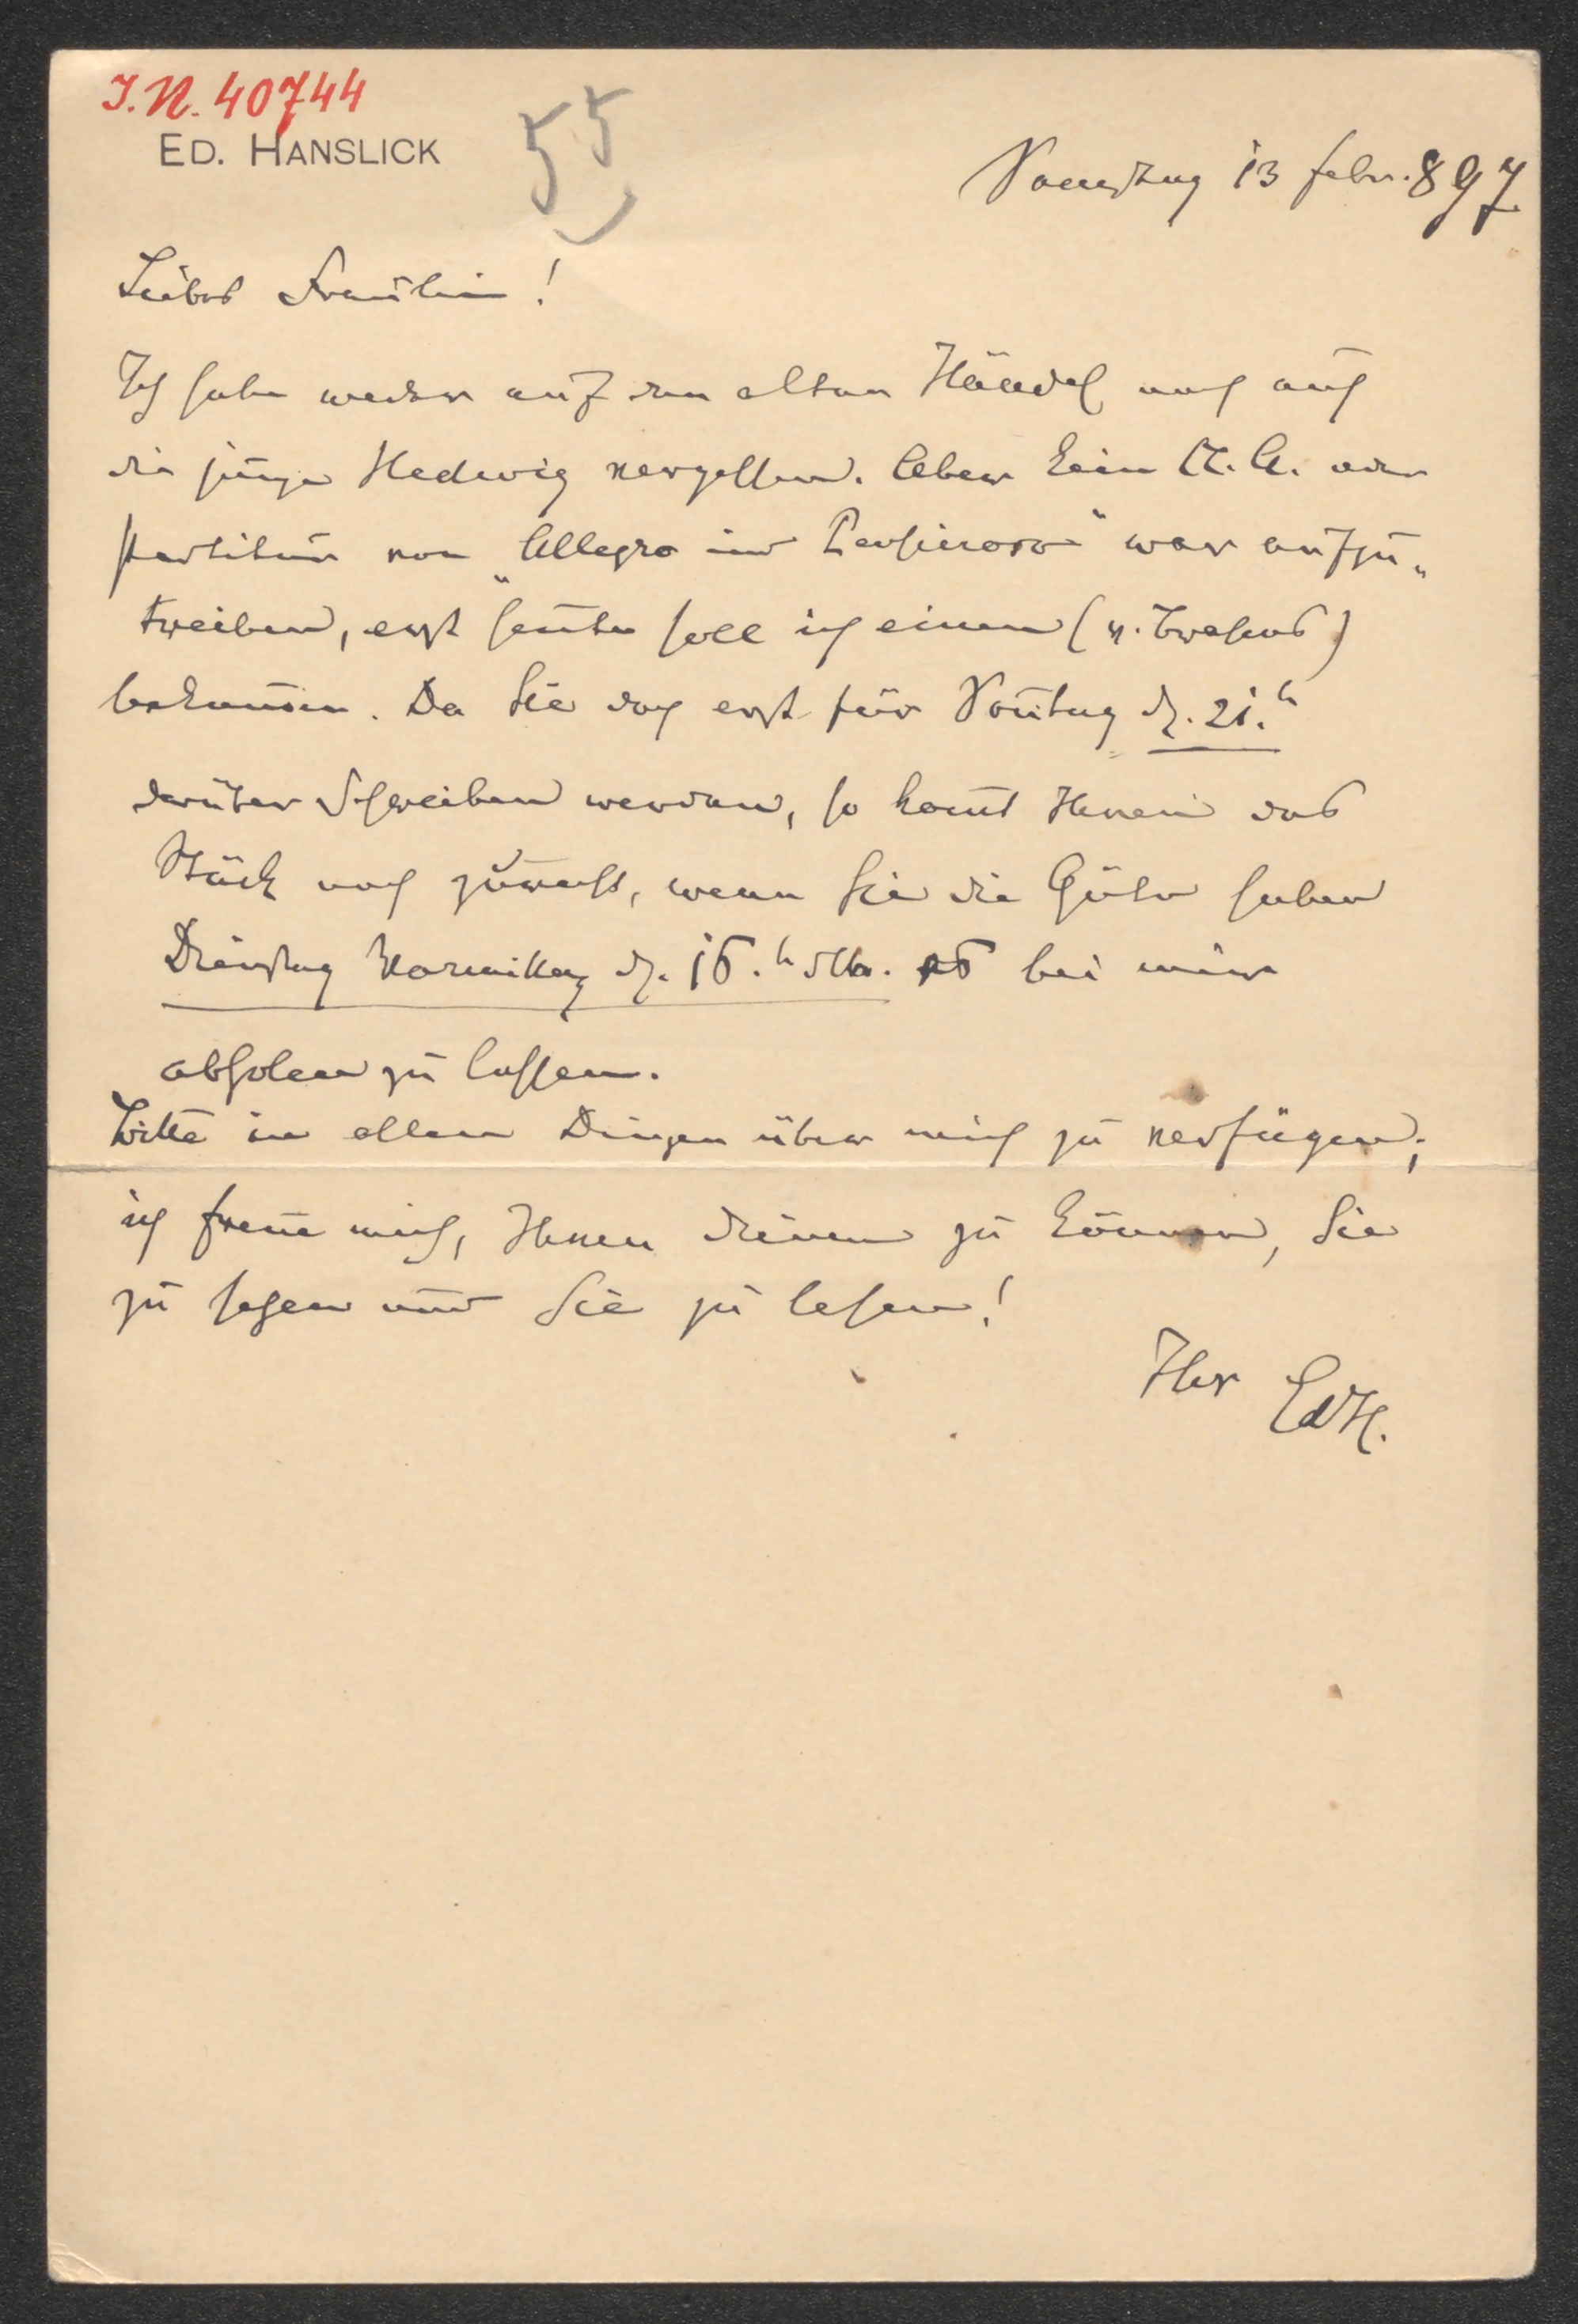 I.N. 40744
ED. HANSLICK
55
Samstag 13 Febr. 897
Liebes Fräulein!
Ich habe weder auf den alten Händel noch auf
die junge Hedwig vergessen. Aber kein K. A. oder
Partitur von „Allegro und Pensieroso" war aufzu„
treiben, erst heute soll ich einen (v. Brahms)
bekom̅en. Da Sie doch erst für Son̅tag d. 21.
darüber schreiben werden, so kom̅t Ihnen das
Stück noch zurecht, wenn Sie die Güte haben
Dienstag Vormittag d. 16. dM. es bei mir
abholen zu lassen.
Bitte in allen Dingen über mich zu verfügen;
ich freue mich, Ihnen dienen zu können, Sie
zu sehen und Sie zu lesen!
Ihr EdH.